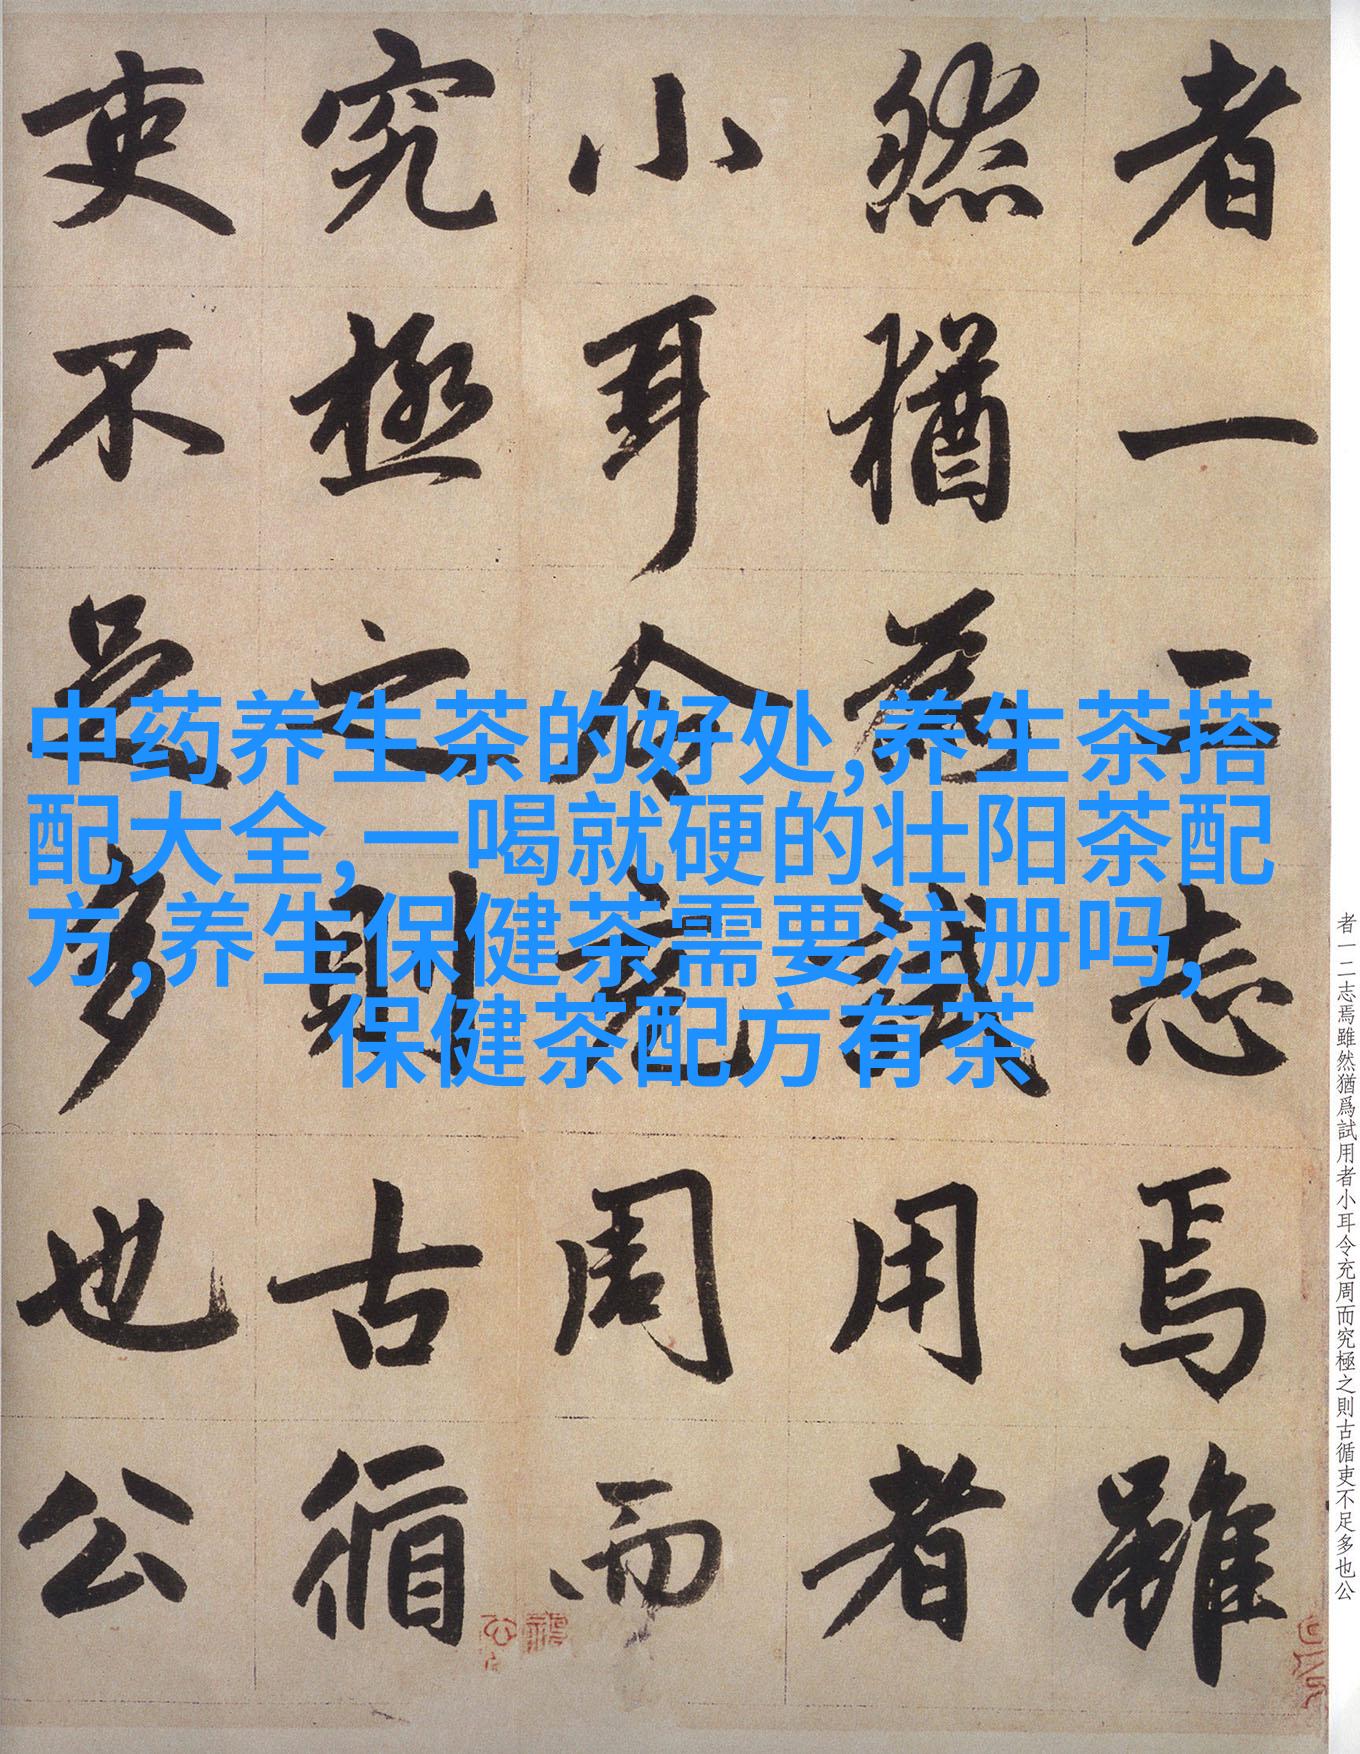 者一二志焉雖
然猶為試用者
小耳令充周而
究極之則古循
吏不足多也公
中药养生茶的好处,养生茶搭
配大全,一喝就硬的壮阳茶配
方,养生保健茶需要注册吗,
保健茶配方有茶
者一二志焉雖然猶爲試用者小耳令充周而究極之則古循吏不足多也公